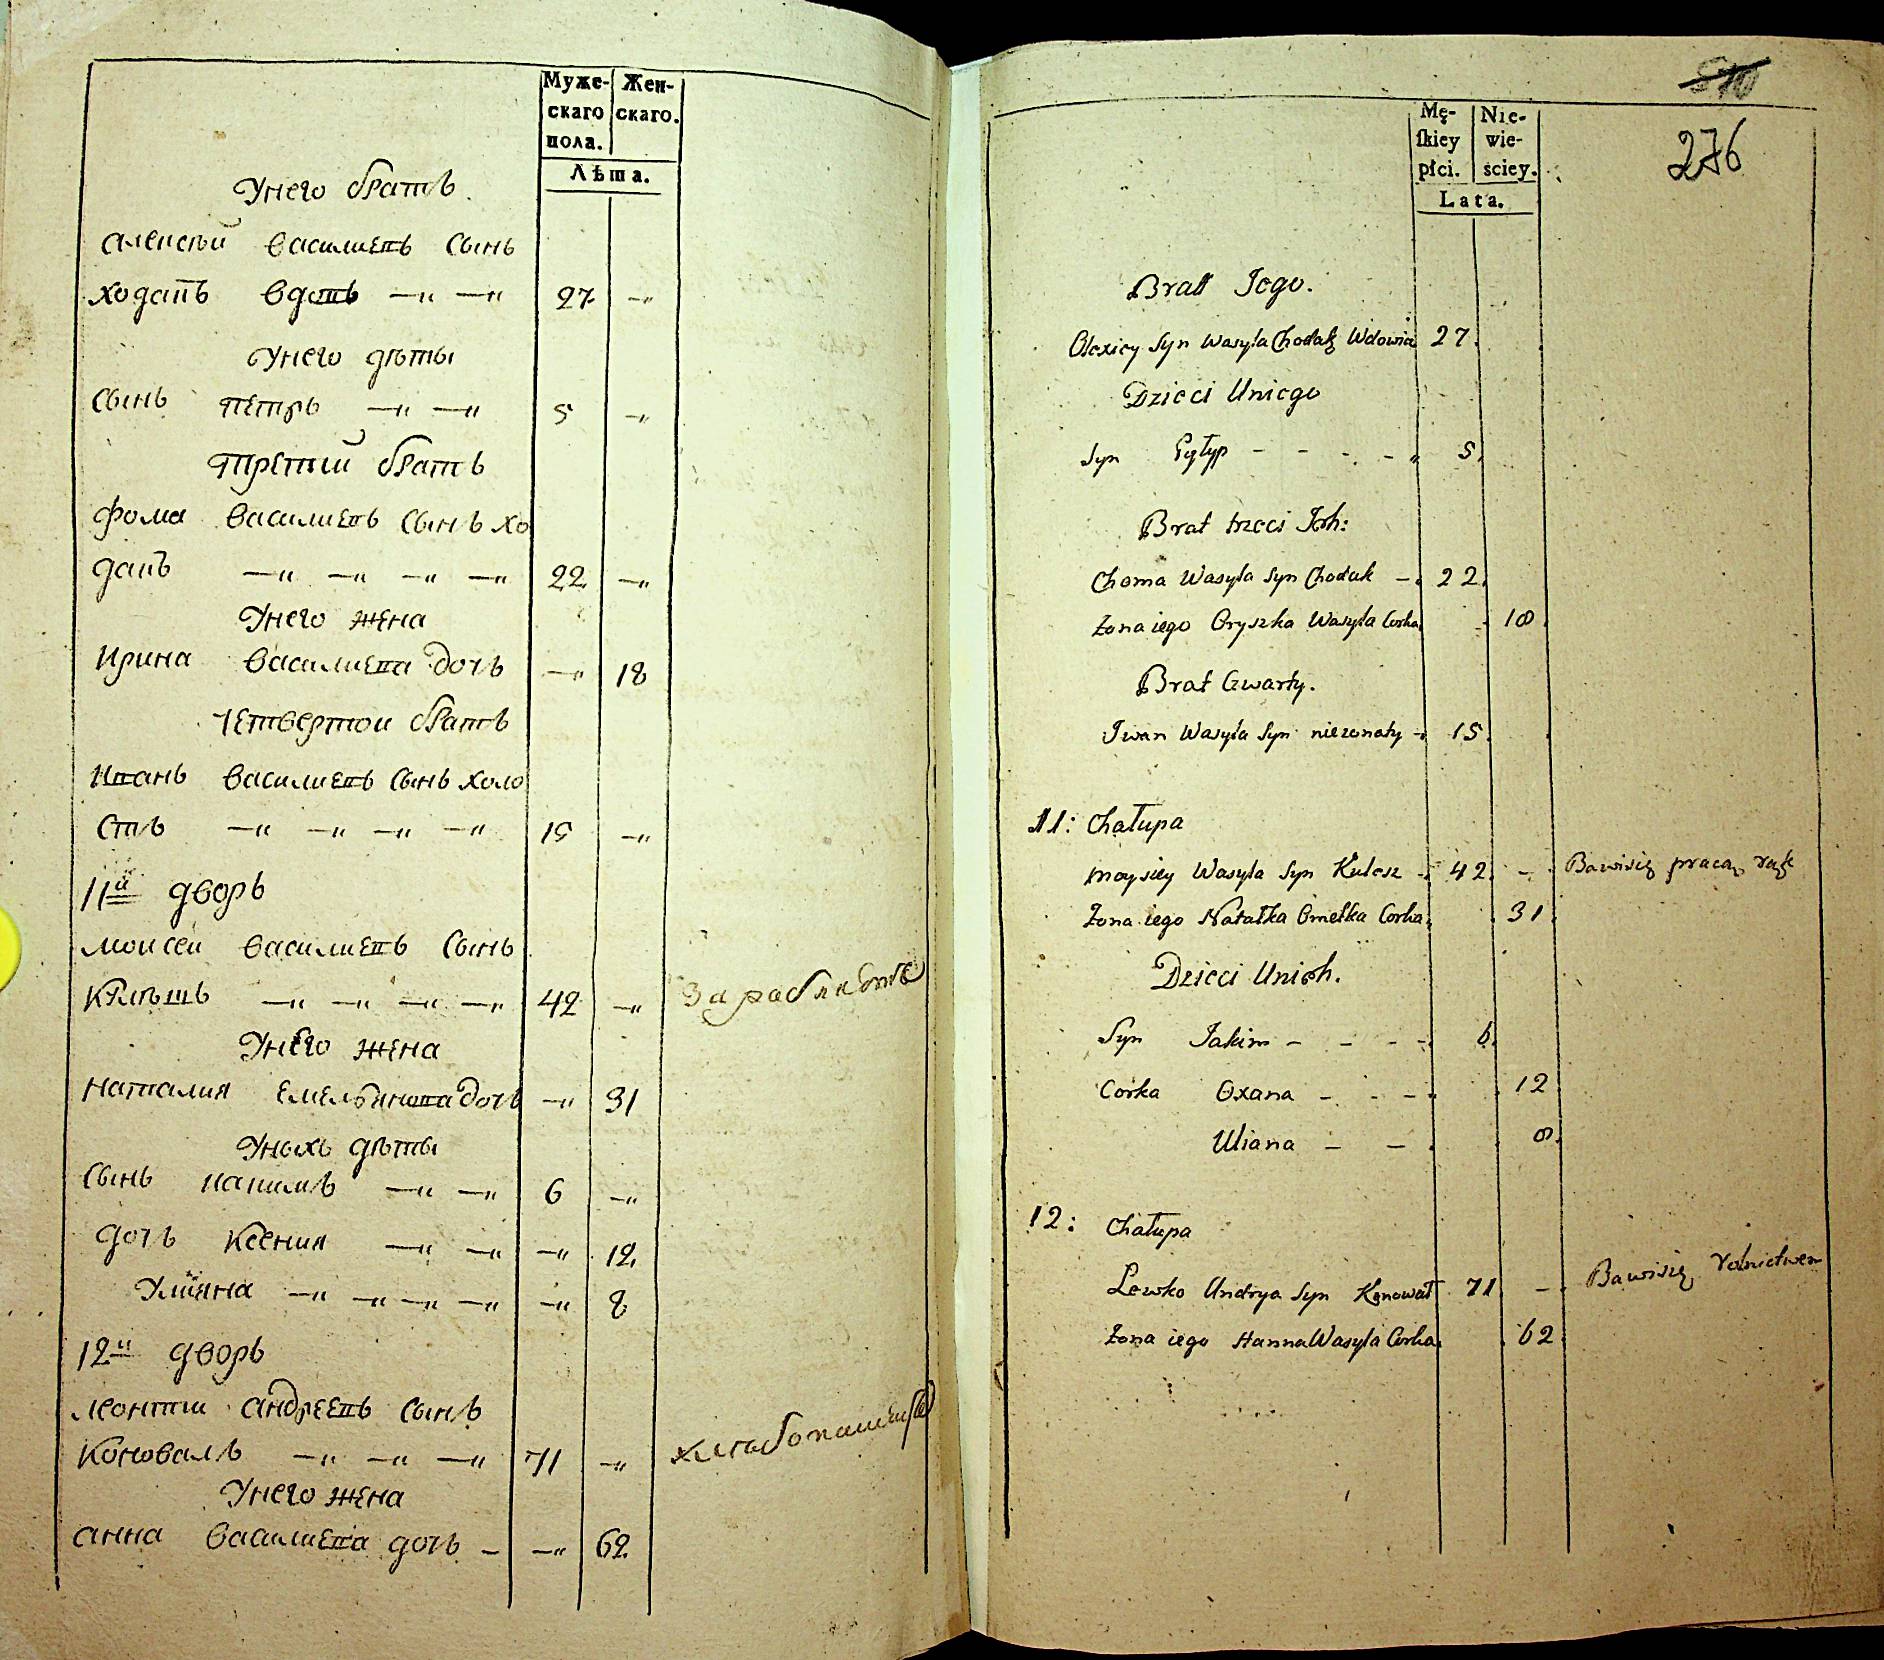 Муже-
скаго
пола.
Жен-
скаго.
Лѣта.
Унего братъ
алексѣй василиевъ сынъ
ходакъ вдовъ —„ —„ 27 —„
Унего дѣти
сынъ петръ —„ —„ 5 —„
третий братъ
фома василиевъ сынъ хо
дакъ —„ —„ —„ —„ 22 —„
Унего жена
ирина василиева дочь —„ 18
четвертой братъ
иванъ василиевъ сынъ холо
стъ —„ —„ —„ —„ 15 —„
11й дворъ
моисей василиевъ сынъ
—„ —„ —„ —„ 42 —„
Унего жена
наталия емельянова дочь —„ 31
Уныхъ дѣти
сынъ иакимъ —„ —„ 6 —„
дочь ксения —„ —„ —„ 12
Улияна —„ —„ —„ —„ —„ 8
12й дворъ
леонтий андреевъ сынъ
коновалъ —„ —„ —„ 71 —„
Унего жена
анна василиева дочь – —„ 62
276
Mę-
ſkiey
płci.
Nie-
wie-
sciey.
Lata.
Bratt Jego.
Olexiey Syn Wasyla Chodak Wdowiec 27.
Dzieci Uniego
Syn - - - - 5.
Brat trzeci Ich:
Choma Wasyla Syn Chodak - 22.
Żona iego Oryszka Wasyla Corka 18.
Brat Czwarty.
Iwan Wasyla Syn niezonaty - 15.
11: Chałupa
Moysiey Wasyla Syn Kulesz - 42. - Bawisię pracą rąk
Żona iego Natałka Omelka Corka 31.
Dzieci Unich.
Syn Jakim - - - - 6.
Corka Oxana - - - - 12
Uliana - - 8.
12: Chałupa
Lewko Undrya Syn Konował 71 - Bawisię rolnictwem
Żona iego Hanna Wasyla Corka 62